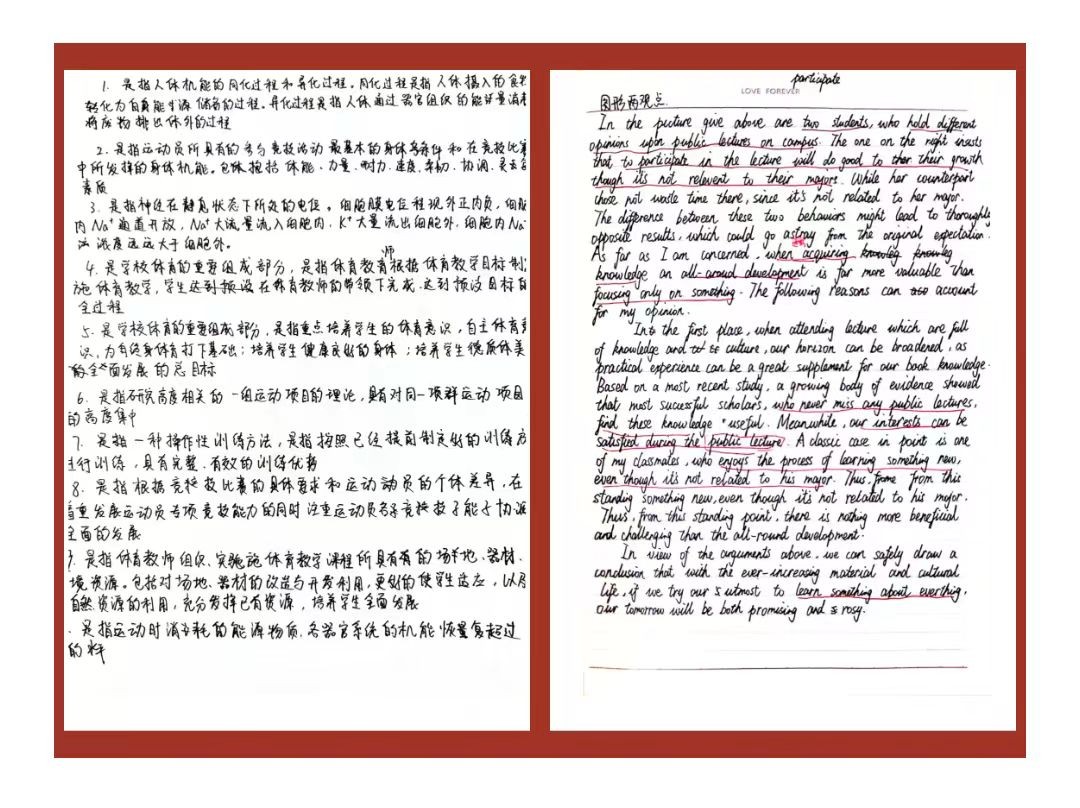 1. 是指人体机能的同化过程和异化过程。同化过程是指人体摄入的食物
转化为自身能量源储备的过程。异化过程是指人体通过器官组织的能量消耗
将废物排出体外的过程
2. 是指运动员所具有的参与竞技活动最基本的身体条件和在竞技比赛
中所发挥的身体机能。包括体能、力量、耐力、速度、柔韧、协调、灵
素质
3. 是指神经在静息状态下所处的电位。细胞膜电位呈现外正内负,细胞
内Na⁺通道开放,Na⁺大流量流入细胞内,K⁺大量流出细胞外,细胞内Na
浓度远远大于细胞外。
师
4. 是学校体育的重要组成部分,是指体育教育根据体育教学目标制
施体育教学,学生达到预设在体育教师的带领下完成、达到预设目标的
全过程
5. 是学校体育的重要组成部分,是指重点培养学生的体育意识,自主体育意
识,为终身体育打下基础;培养学生健康良好的身体;培养学生德质体美
的全面发展的总目标
6. 是指研究高度相关的一组运动项目的理论,具有对同一项群运动项目
的高度集中
7. 是指一种操作性训练方法,是指按照已经提前制定好的训练方
进行训练,具有完整、有效的训练优势
8. 是指根据竞技比赛的具体要求和运动员的个体差异,在
重发展运动员专项竞技能力的同时注重运动员各竞技子能力协调
全面的发展
9. 是指体育教师组织、实施体育教学课程所具有的场地、器材、
境资源。包括对场地、器材的改造与开发利用,更好的使学生适应,以及
自然资源的利用,充分发挥已有资源,培养学生全面发展
. 是指运动时消耗的能源物质、各器官系统的机能恢复超过
的
participate
LOVE FOREVER
图形两观点.
In the picture give above are two students, who hold different
opinions upon public lectures on campus. The one on the right insists
that to participate in the lecture will do good to their growth
though it's not relevent to their majors. While her counterpart
chose not waste time there, since it's not related to her major.
The difference between these two behaviors might lead to thoroughly
opposite results, which could go astray from the original expectation.
As far as I am concerned, when acquiring
knowledge an all-aroud development is far more valuable than
focusing only on something. The following reasons can account
for my opinion.
In the first place, when attending lecture which are full
of knowledge and culture, our horizon can be broadened, as
practical experience can be a great supplement for our book knowledge.
Based on a most recent study, a growing body of evidence showed
that most successful scholars, who never miss any public lectures,
find these knowledge useful. Meanwhile, our interests can be
satisfied during the public lecture. A classic case in point is one
of my classmates, who enjoys the process of learning something new,
even though it's not related to his major. Thus, from this
standing something new, even though it's not related to his major.
Thus, from this standing point, there is nothing more beneficial
and challenging than the all-round development.
In view of the arguments above, we can safely draw a
conclusion that with the ever-increasing material and cultural
life, if we try our utmost to learn something about everthing,
our tomorrow will be both promising and rosy.